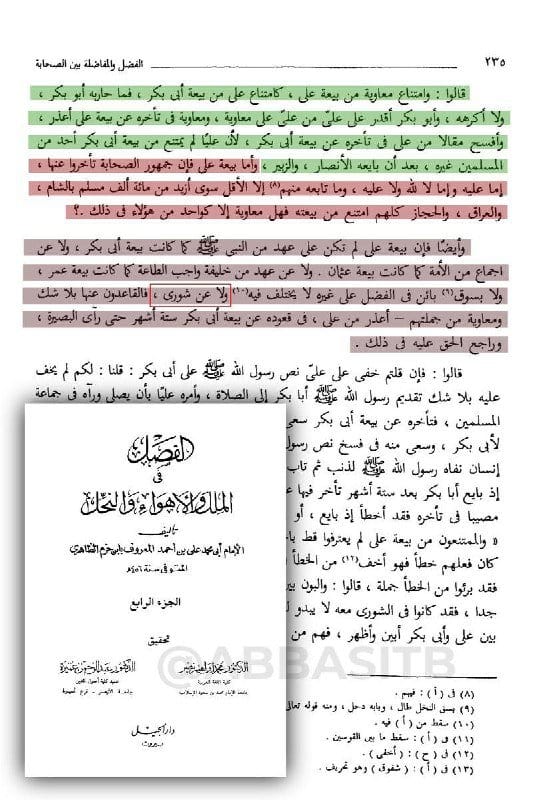 ٢٣٥ الفضل والمفاضلة بين الصحابة
قالوا : وامتناع معاوية من بيعة على ، كامتناع على من بيعة أبى بكر ، فما حاربه أبو بكر ،
ولا أكرهه ، وأبو بكر أقدر على علىّ من علىّ على معاوية ، ومعاوية فى تأخره عن بيعة على أعذر ،
وأفسح مقالا من على فى تأخره عن بيعة أبى بكر ، لأن عليًا لم يمتنع من بيعة أبى بكر أحد من
المسلمين غيره ، بعد أن بايعه الأنصار ، والزبير ، وأما بيعة على فإن جمهور الصحابة تأخروا عنها ،
إما عليه وإما لا له ولا عليه ، وما تابعه منهم(٨) إلا الأقل سوى أزيد من مائة ألف مسلم بالشام ،
والعراق ، والحجاز كلهم امتنع من بيعته فهل معاوية إلا كواحد من هؤلاء فى ذلك .؟
وأيضًا فإن بيعة على لم تكن على عهد من النبى ﷺ كما كانت بيعة أبى بكر ، ولا عن
إجماع من الأمة كما كانت بيعة عثمان . ولا عن عهد من خليفة واجب الطاعة كما كانت بيعة عمر ،
ولا بسوق(٩) بائن فى الفضل على غيره لا يختلف فيه(١٠) ولا عن شورى ، فالقاعدون عنها بلا شك
ومعاوية من جملتهم – أعذر من على ، فى قعوده عن بيعة أبى بكر ستة أشهر حتى رأى البصيرة ،
وراجع الحق عليه فى ذلك .
قالوا : فإن قلتم خفى على علىّ نص رسول الله ﷺ على أبى بكر : قلنا : لكم لم يخف
عليه بلا شك تقديم رسول الله ﷺ أبا بكر إلى الصلاة ، وأمره عليًا بأن يصلى وراءه فى جماعة
المسلمين ، فتأخره عن بيعة أبى بكر سعى
لأبى بكر ، وسعى منه فى فسخ نص رسول
إنسان نفاه رسول الله ﷺ لذنب ثم تاب
إذ بايع أبا بكر بعد ستة أشهر تأخر فيها
مصيبا فى تأخره فقد أخطأ إذ بايع ، أو
« والممتنعون من بيعة على لم يعترفوا قط
كان فعلهم خطأ فهو أخف(١٢) من الخطأ
فقد برئوا من الخطأ جملة ، قالوا : والبون بين
جدا ، فقد كانوا فى الشورى معه لا يبدو
بين على وأبى بكر أبين وأظهر ، فهم من
(٨) فى ( أ ) : فيهم .
(٩) بسق النخل طال ، وبابه دخل ، ومنه قوله تعالى
(١٠) سقط من ( أ ) فيه .
(١١) فى ( أ ) : سقط ما بين القوسين .
(١٢) فى ( ح ) : ( أخفى ) .
(١٣) فى ( أ ) : شفوق ) وهو تحريف .
الفصل
فى
الملل والأهواء والنحل
تأليف
الإمام أبى محمد على بن أحمد المعروف بابن حزم الظاهرى
المتوفى سنة ٤٥٦ هـ
الجزء الرابع
تحقيق
الدكتور محمد إبراهيم نصر
الدكتور عبد الرحمن عميرة
دار الجيل
بيروت
@ABBASITB